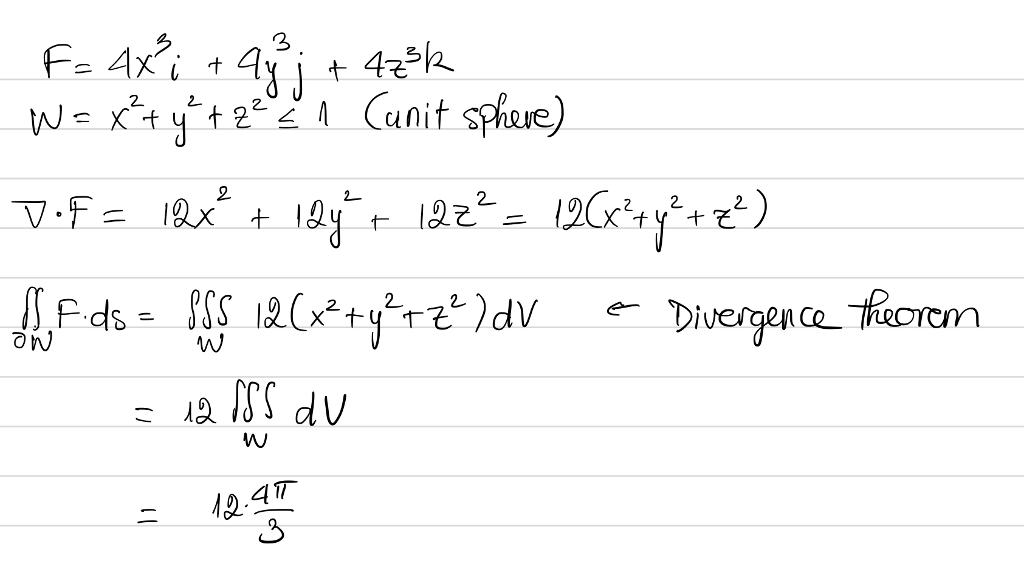 F = 4x³i + 4y³j + 4z³k
W = x² + y² + z² ≤ 1 (unit sphere)
∇·F = 12x² + 12y² + 12z² = 12(x² + y² + z²)
∬_∂W F·ds = ∭_W 12(x² + y² + z²) dV ← Divergence theorem
= 12 ∭_W dV
= 12·4π/3